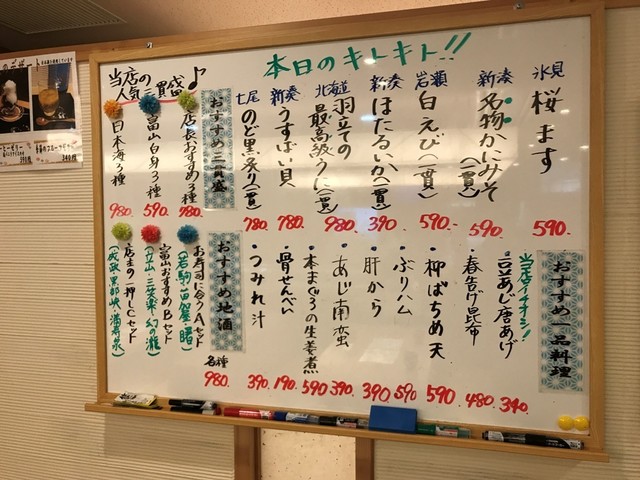 本日のキトキト!!
氷見
桜ます
590.
新湊
名物かにみそ
(一貫)
590.
岩瀬
白えび(一貫)
590-
新湊
ほたるいか(一貫)
390.
北海道
羽立の
最高級うに(一貫)
980.
新湊
うすばい貝
780.
七尾
のど黒炙り(一貫)
780.
おすすめ三貫盛
当店の
人気の三貫盛♪
店長おすすめ3種
780.
富山白身3種
590.
日本海3種
980.
おすすめ一品料理
当店イチオシ!
・豆あじ唐あげ
390.
・春告げ昆布
480.
・柳ばちめ天
590.
・ぶりハム
590
・肝から
390.
・あじ南蛮
390.
・本まぐろの生姜煮
590
・骨せんべい
190.
・つみれ汁
390.
おすすめ地酒
各種
980.
お寿司に合うAセット
(若駒・苗加屋・曙)
富山おすすめBセット
(立山・三笑楽・幻の瀧)
店主の一押しCセット
(成政・黒部峡・満寿泉)